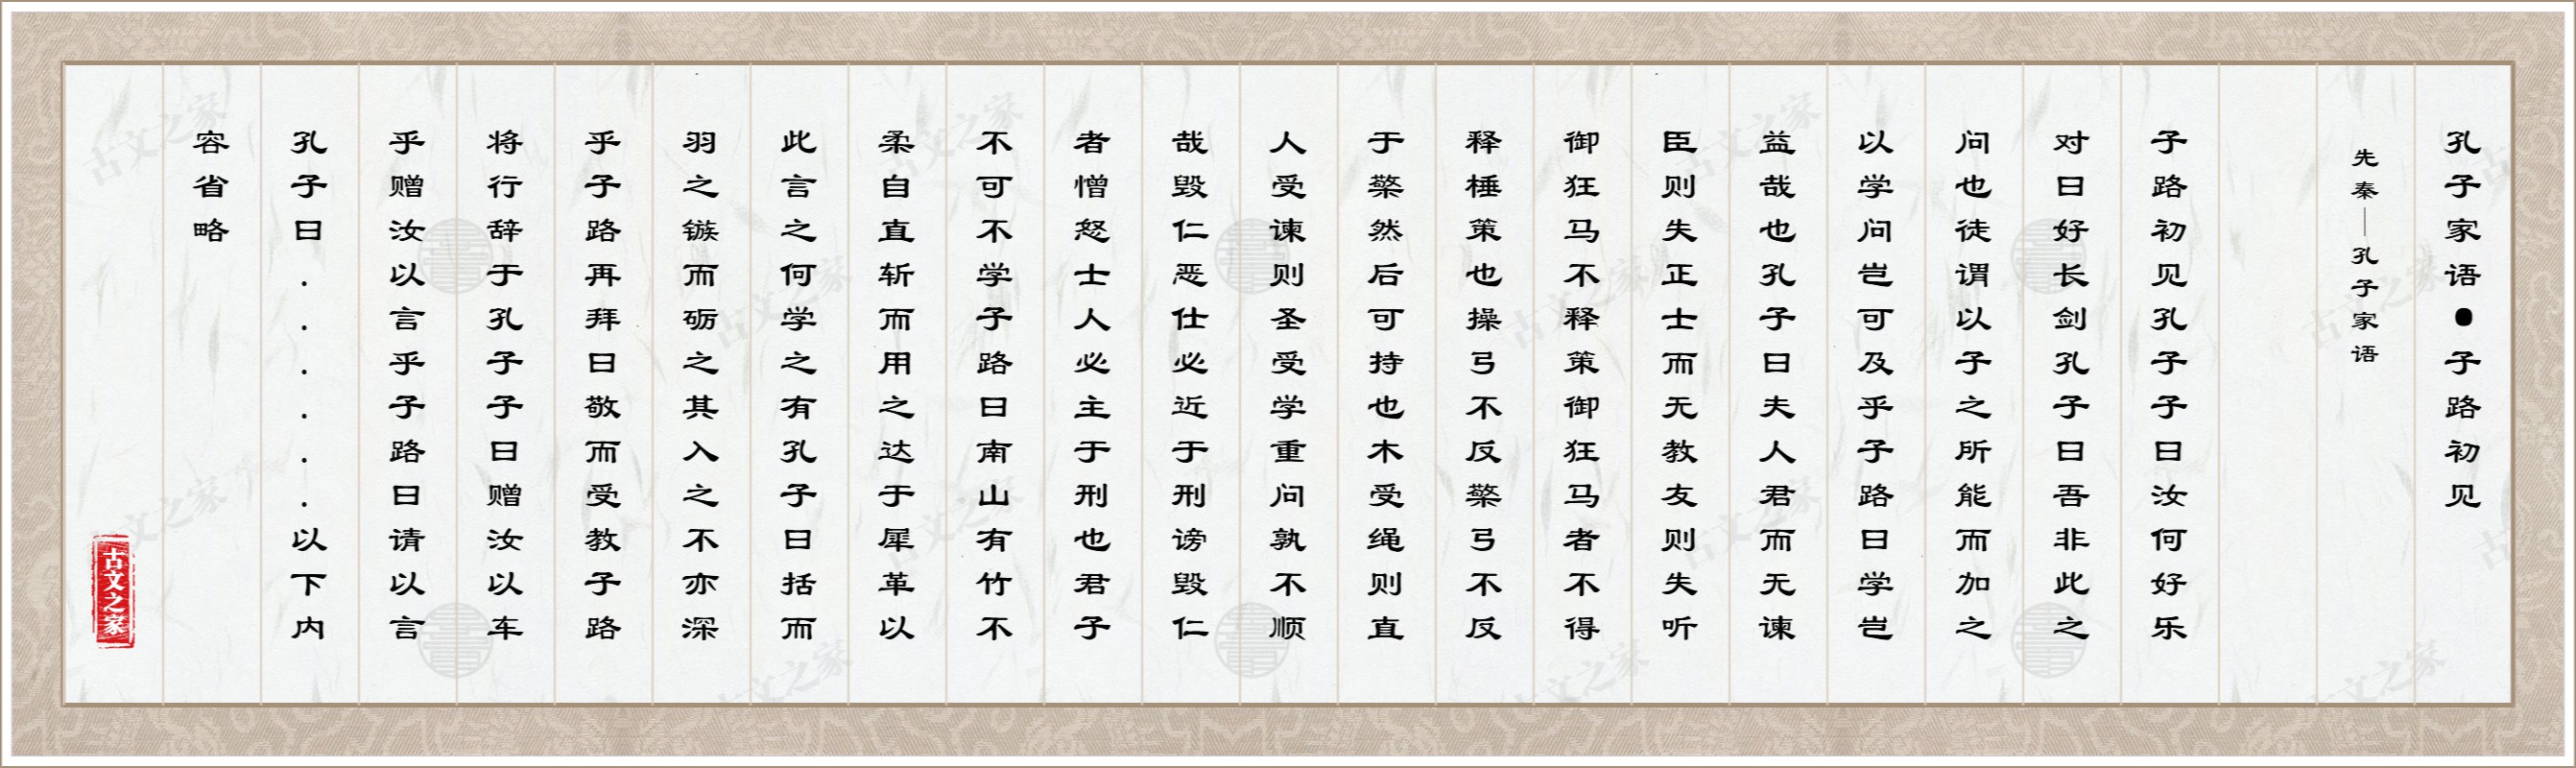 孔子家语●子路初见
先秦—孔子家语
子路初见孔子子曰汝何好乐
对曰好长剑孔子曰吾非此之
问也徒谓以子之所能而加之
以学问岂可及乎子路曰学岂
益哉也孔子曰夫人君而无谏
臣则失正士而无教友则失听
御狂马不释策御狂马者不得
释棰策也操弓不反檠弓不反
于檠然后可持也木受绳则直
人受谏则圣受学重问孰不顺
哉毁仁恶仕必近于刑谤毁仁
者憎怒士人必主于刑也君子
不可不学子路曰南山有竹不
柔自直斩而用之达于犀革以
此言之何学之有孔子曰括而
羽之镞而砺之其入之不亦深
乎子路再拜曰敬而受教子路
将行辞于孔子子曰赠汝以车
乎赠汝以言乎子路曰请以言
孔子曰......以下内
容省略
古文之家